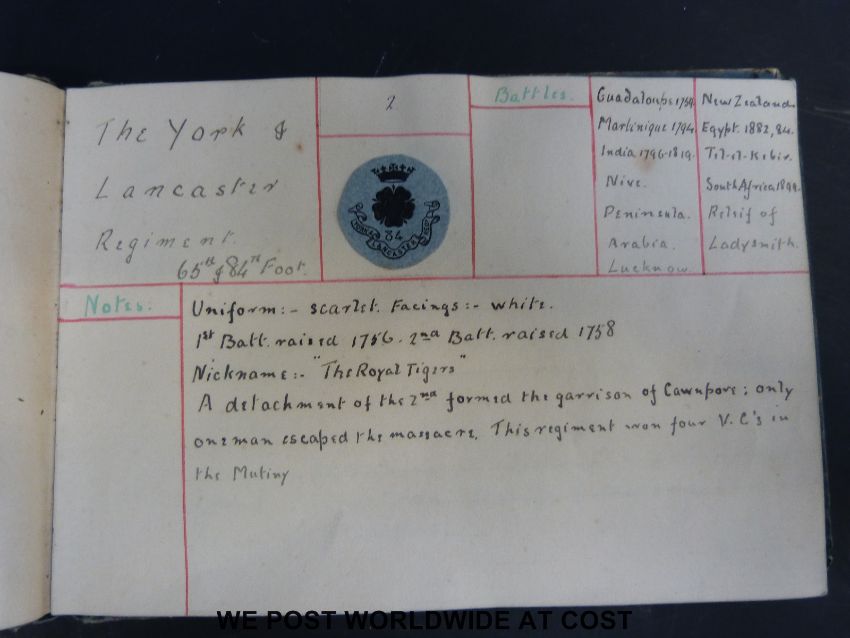 The York &
Lancaster
Regiment.
65th & 84th Foot.
2
84
YORK &
LANCASTER
REGT
Battles.
Guadaloupe 1759.
Martinique 1794.
India 1796-1819.
Nive.
Peninsula.
Arabia.
Lucknow.
New Zealand.
Egypt. 1882, 84.
Tel-el-Kebir.
South Africa 1899.
Relief of
Ladysmith.
Notes:
Uniform:- scarlet. Facings:- white.
1st Batt. raised 1756. 2nd Batt. raised 1758
Nickname:- "The Royal Tigers"
A detachment of the 2nd formed the garrison of Cawnpore; only
one man escaped the massacre. This regiment won four V.C's in
the Mutiny
WE POST WORLDWIDE AT COST